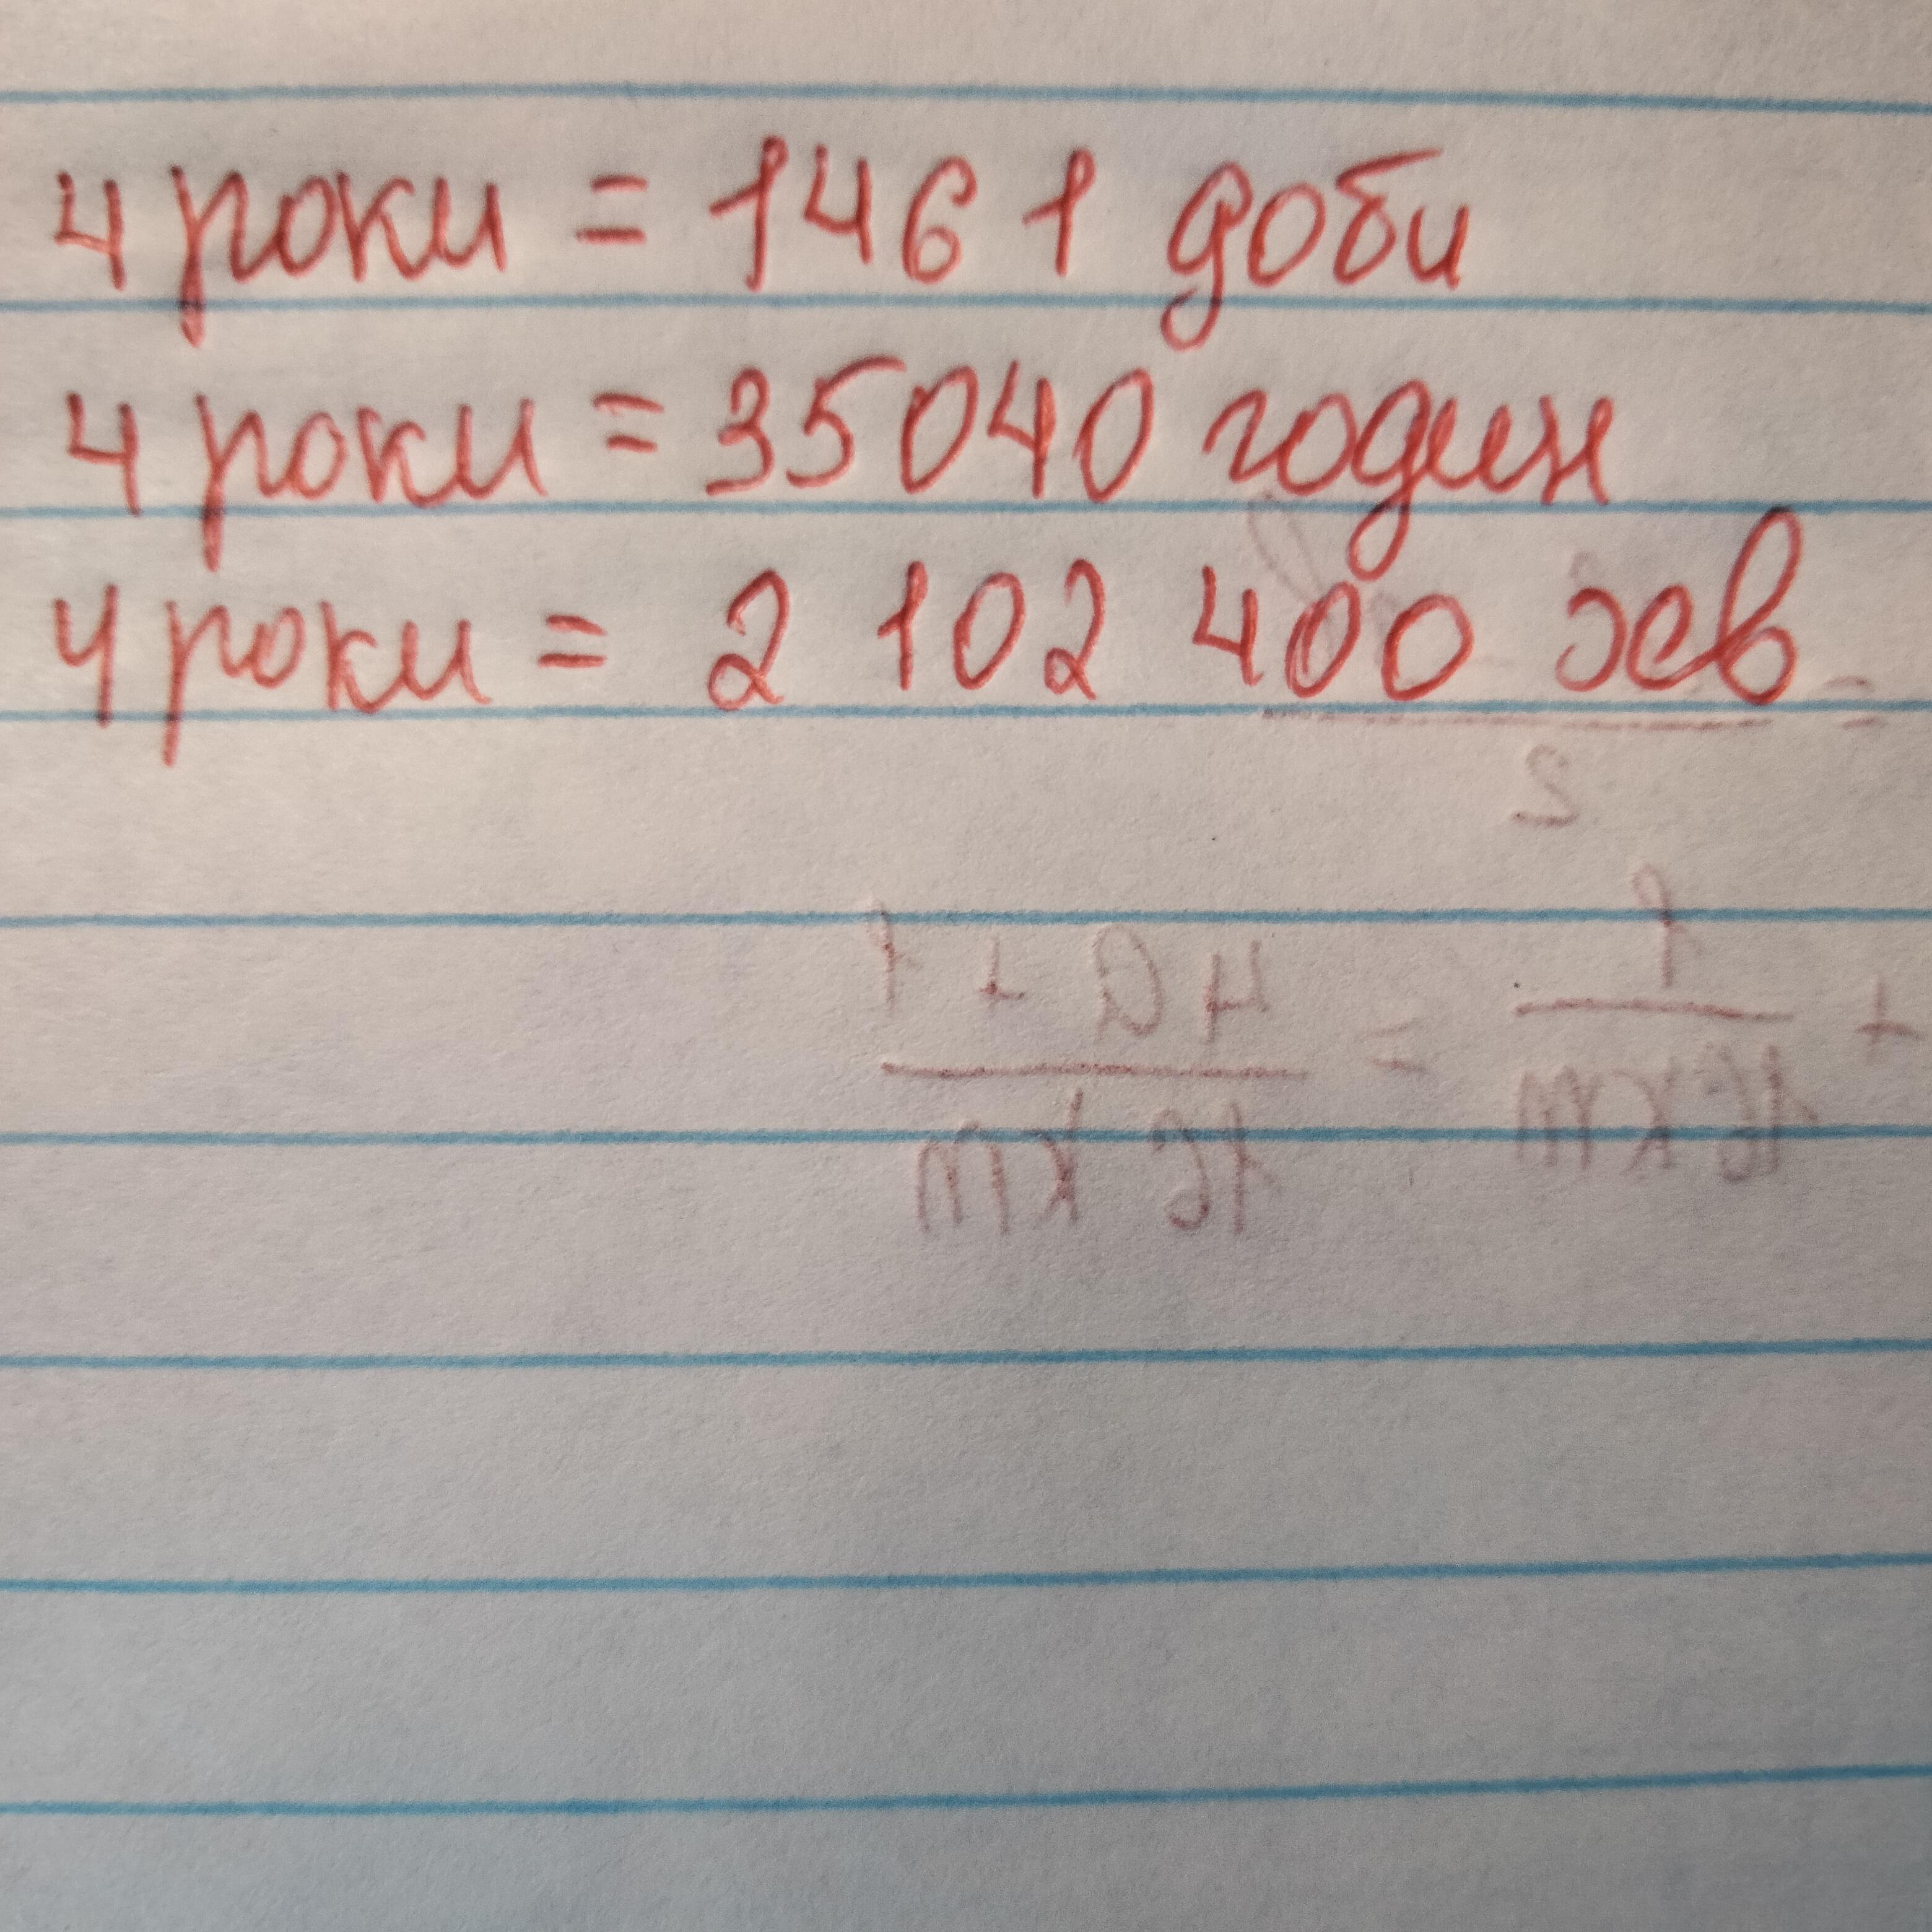 4 роки = 1461 доби
4 роки = 35040 годин
4 роки = 2 102 400 хв